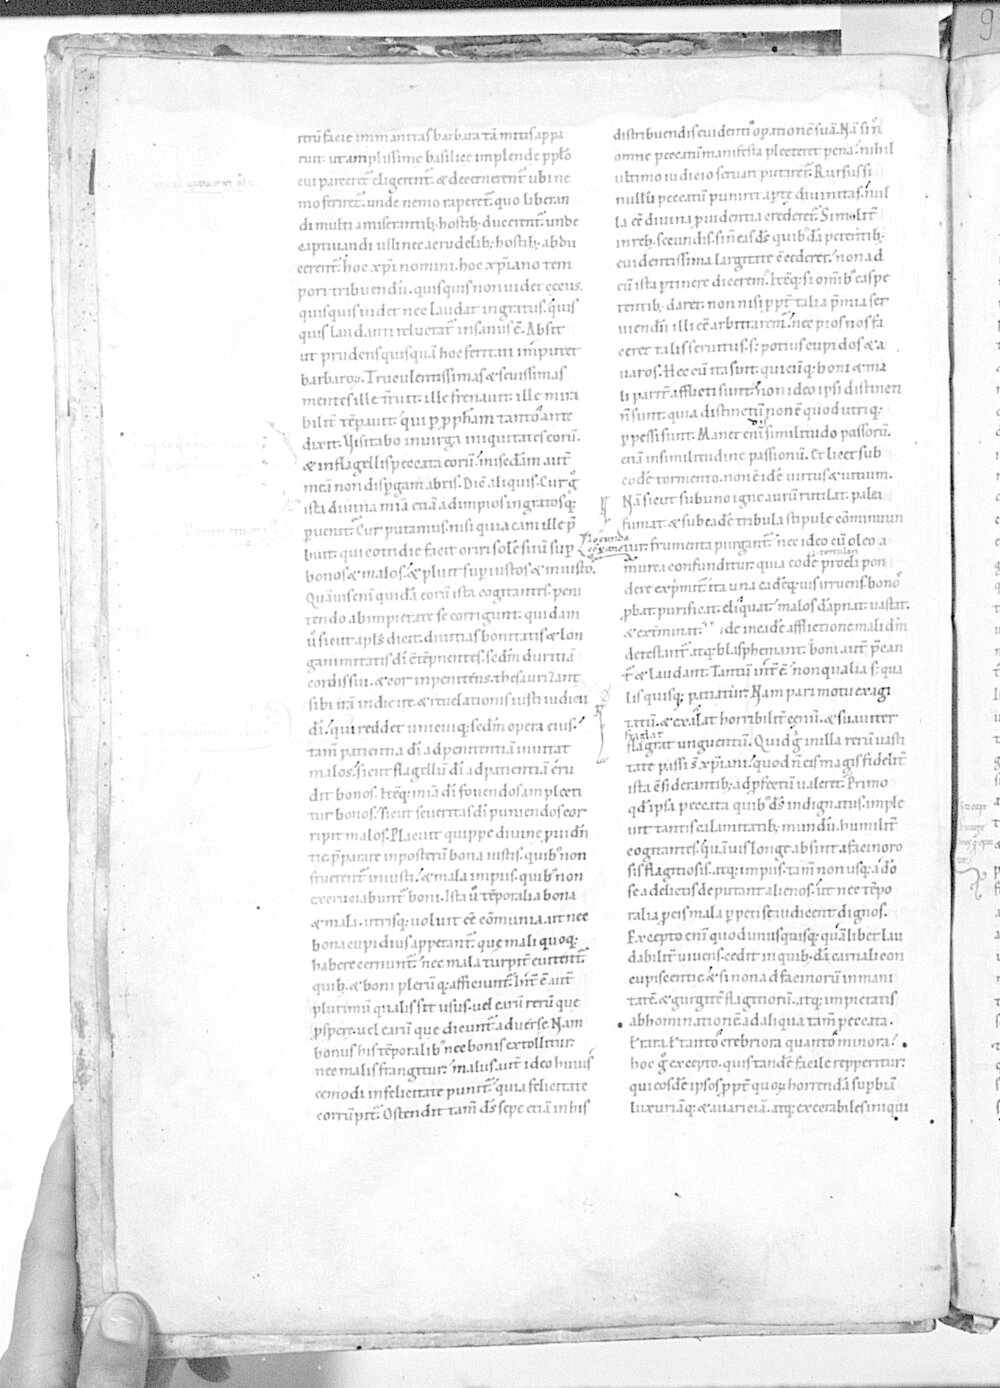 ruit. ut amplissime basilice implende pplo
cui parceret eligerent. & decernerent ubi ne
mo feriret. unde nemo raperet. quo liberan
di multi a miserantib; hostib; ducerent. unde
captiuandi ulli nec a crudelib; hostib; abdu
cerent. hoc xpi nomini. hoc xpiano tem
pori tribuendū. quisquis non uidet cecus.
quisquis uidet nec laudat ingratus. quis
quis laudanti reluctat insanus ē. Absit
ut prudens quisquā hoc feritati imputet
barbaroꝝ. Truculentissimas & seuissimas
mentes ille t̄ruit. ille frenauit. ille mira
bilit̄ tēpauit. qui p pphām tanto ante
dixit. Uisitabo in uirga iniquitates eorū.
& in flagellis peccata eorū. misedam aut̄
meā non dispgam ab eis. Dic̄ aliquis. Cur g̊
ista diuina mia etiā ad impios ingratosq;
puenit. Cur putamus. nisi quia eam ille p̄
buit. qui cotidie facit oriri solē suū sup
bonos & malos. & pluit sup iustos & iniustos.
Quāuis eni quidā eorū ista cogitantes. peni
tendo ab impietate se corrigunt. quidam
ū sicut apls dicit. diuitias bonitatis & lon
ganimitatis dī cōtēpnentes. sedm duritiā
cordis sui. & cor inpenitens. thesaurizant
sibi irā in die ire. & reuelationis iusti iudicii
dī. qui reddet unicuiq; sedm opera eius.
tam patientia dī ad penitentiā inuitat
malos. sicut flagellū dī ad patientiā eru
dit bonos. Itēq; mia dī fouendos amplecti
tur bonos. sicut seueritas dī puniendos cor
ripit malos. Placuit quippe diuine puidn
tie pparare in posterū bona iustis. quib; non
fruerent iniusti. & mala impiis. quib; non
excruciabunt boni. Ista ū tēporalia bona
& mala. utrisq; uoluit ēē cōmunia. ut nec
bona cupidius appetant. que mali quoq;
habere cernunt. nec mala turpit̄ euitent
quib; & boni plerūq; afficiunt. Int̄ē aut̄
plurimū qualis sit usus. uel earū rerū que
pspere. uel earū que dicunt aduerse. Nam
bonus his tēporalib; nec bonis extollitur.
nec malis frangitur. malus aut̄ ideo huius
cemodi infelicitate punit. quia felicitate
corrūpit. Ostendit tam ds̄ sepe etiā in his
distribuendis euidenti opationē suā. Nā si n̄c
omne peccatū manifesta plecteret pena. nihil
ultimo iudicio seruari putaret. Rursus si
nullū peccatū puniret apte diuinitas. nul
la ēē diuina puidentia crederet. Similit̄
in reb; secundis. si n̄ eas ds̄ quibdā petentib;
euidentissima largitate ccederet. non ad
eū ista ptinere dicerem. Itēq; si omib; eas pe
tentib; daret. non nisi ppt̄ talia pmia ser
uiendū illi ēē arbitrarem. nec pios nos fa
ceret talis seruitus. s; potius cupidos & a
uaros. Hec cū ita sint. quicūq; boni & ma
li parit̄ afflicti sunt. non ideo ipsi distincti
n̄ sunt. quia distinctū non ē quod utriq;
ppessi sunt. Manet eni dissimilitudo passorū.
etiā in similitudine passionū. Et licet sub
eodē tormento. non ē idē uirtus & uitium.
Nā sicut sub uno igne aurū rutilat. palea
fumat. & sub eadē tribula stipule cōminuun
iocunda
copatio
tur. frumenta purgant. nec ideo cū oleo a
murca confunditur. quia eodē preli pon
s. torcularis
dere exprimit. ita una eadēq; uis irruens. bonos
pbat. purificat. eliquat. malos dāpnat. uastat.
& exterminat. unde in eadē afflictione mali dm̄
detestant. atq; blasphemant. boni aut̄ pcan
t̄ & laudant. Tantū int̄ ē non qualia s; qua
lis quisq; patiatur. Nam pari motu exagi
tatū. & exalat horribilit̄ cenū. & suauiter
fraglat
flagrat unguentū. Quid g̊ in illa rerū uasti
tate passi s̄ xpiani. quod n̄ eis magis fidelit̄
ista csiderantib; ad pfectū ualeret. Primo
qd̄ ipsa peccata quib; ds̄ indignatus imple
uit tantis calamitatib; mundū. humilit̄
cogitantes. quāuis longe absint a facinoro
sis flagitiosis. atq; impiis. tam non usq; adeo
se a delictis deputant alienos. ut nec tēpo
ralia p eis mala ppeti se iudicent dignos.
Excepto eni quod unusquisq; quālibet lau
dabilit̄ uiuens. cedit in quibdā carnali con
cupiscentie. & si non ad facinorū inmani
tatē. & gurgitē flagitiorū. atq; impietatis
abhominationē. ad aliqua tam peccata.
t̄ rara. t̄ tanto crebriora quanto minora.
hoc g̊ excepto. quis tandē facile repperitur.
qui eosdē ipsos ppt̄ quoꝝ horrendā supbiā
luxuriāq; & auariciā. atq; execrabiles iniqui